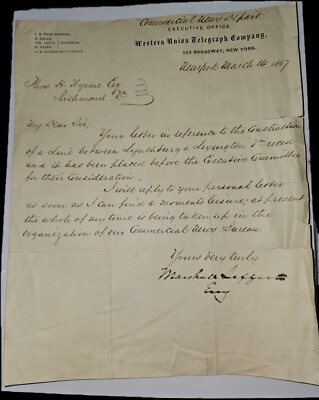 Commercial News Depart
EXECUTIVE OFFICE
Western Union Telegraph Company,
145 BROADWAY, NEW YORK.
New York March 14, 1867
Thos. H. Wynne Esq
Richmond Va
My Dear Sir,
Your letter in reference to the Construction
of a Line between Lynchburg & Lexington
and it has been placed before the Executive Committee
for their Consideration.
I will reply to your personal letter
as soon as I can find a moments leisure; at present
the whole of my time is being taken up in the
organization of our Commercial News Bureau.
Yours very truly
Marshall Lefferts